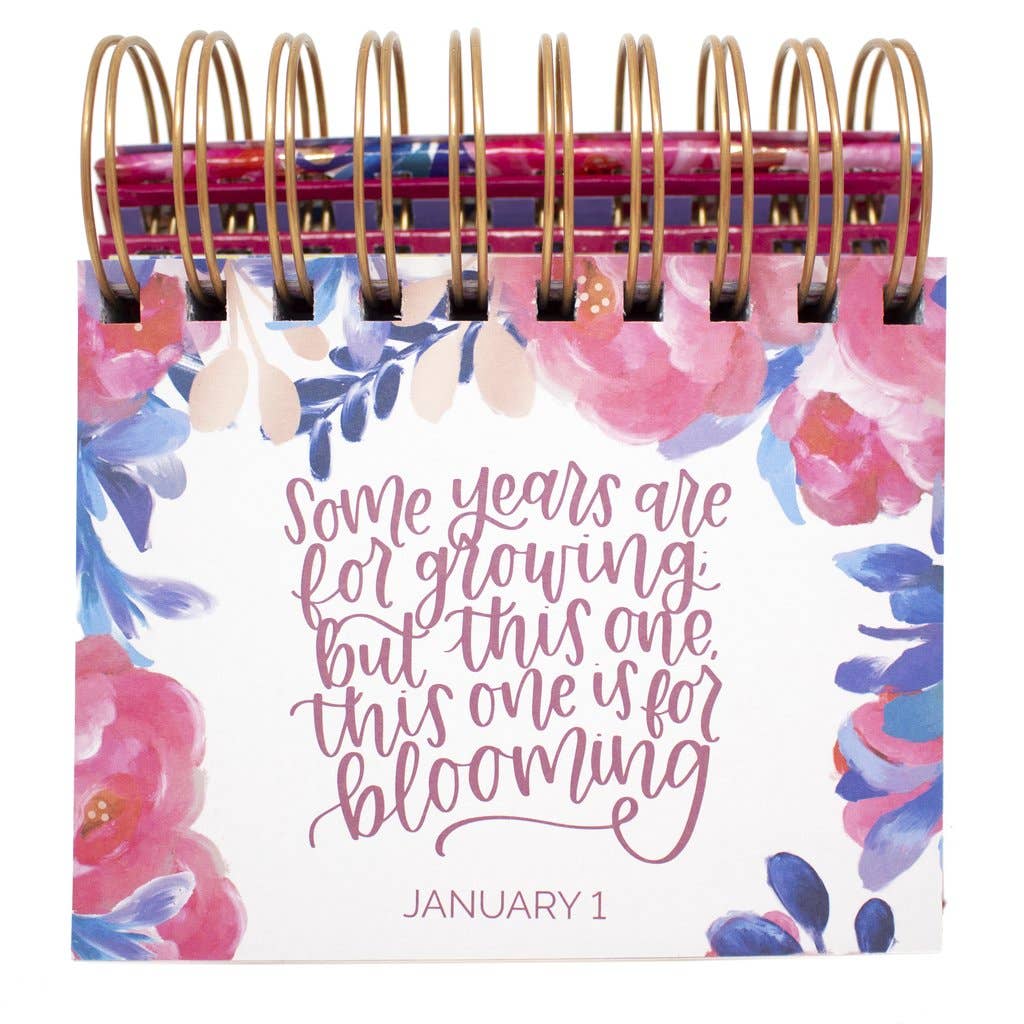 Some years are
for growing;
but this one,
this one is for
blooming
JANUARY 1